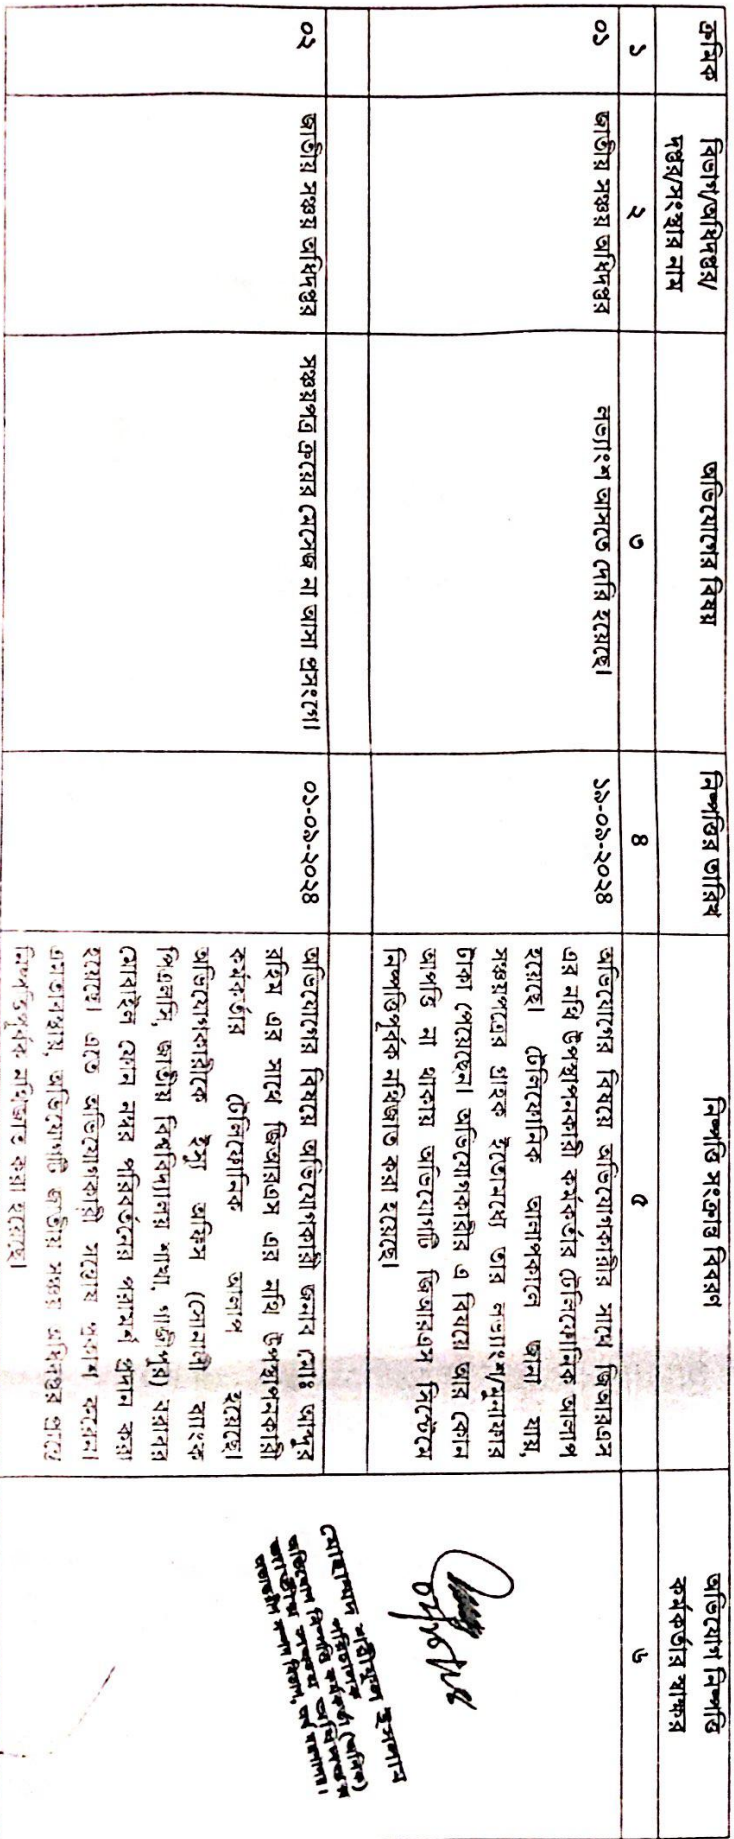 ক্রমিক
বিভাগ/অধিদপ্তর/
দপ্তর/সংস্থার নাম
অভিযোগের বিষয়
নিষ্পত্তির তারিখ
নিষ্পত্তি সংক্রান্ত বিবরণ
অভিযোগ নিষ্পত্তি
কর্মকর্তার স্বাক্ষর
১
২
৩
৪
৫
৬
০১
জাতীয় সঞ্চয় অধিদপ্তর
লভ্যাংশ আসতে দেরি হয়েছে।
১৯-০৯-২০২৪
অভিযোগের বিষয়ে অভিযোগকারীর সাথে জিআরএস
এর নথি উপস্থাপনকারী কর্মকর্তার টেলিফোনিক আলাপ
হয়েছে। টেলিফোনিক আলাপকালে জানা যায়,
সঞ্চয়পত্রের গ্রাহক ইতোমধ্যে তার লভ্যাংশ/মুনাফার
টাকা পেয়েছেন। অভিযোগকারীর এ বিষয়ে আর কোন
আপত্তি না থাকায় অভিযোগটি জিআরএস সিস্টেমে
নিষ্পত্তিপূর্বক নথিজাত করা হয়েছে।
০২
জাতীয় সঞ্চয় অধিদপ্তর
সঞ্চয়পত্র ক্রয়ের মেসেজ না আসা প্রসংগে।
০১-০৯-২০২৪
অভিযোগের বিষয়ে অভিযোগকারী জনাব মোঃ আব্দুর
রহিম এর সাথে জিআরএস এর নথি উপস্থাপনকারী
কর্মকর্তার টেলিফোনিক আলাপ হয়েছে।
অভিযোগকারীকে ইস্যু অফিস (সোনালী ব্যাংক
পিএলসি, জাতীয় বিশ্ববিদ্যালয় শাখা, গাজীপুর) বরাবর
মোবাইল ফোন নম্বর পরিবর্তনের পরামর্শ প্রদান করা
হয়েছে। এতে অভিযোগকারী সন্তোষ প্রকাশ করেন।
এমতাবস্থায়, অভিযোগটি জাতীয় সঞ্চয় অধিদপ্তর প্রান্তে
নিষ্পত্তিপূর্বক নথিজাত করা হয়েছে।
মোহাম্মদ শরীফুল ইসলাম
পরিচালক
অভিযোগ নিষ্পত্তি কর্মকর্তা (অনিক)
জাতীয় সঞ্চয় অধিদপ্তর